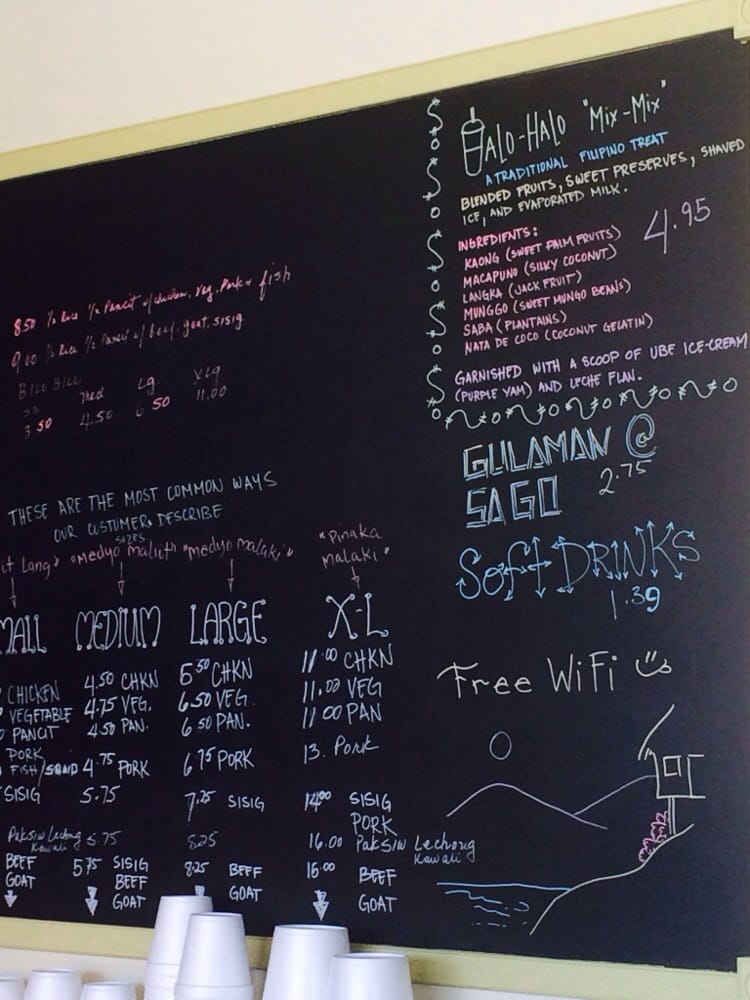 HALO-HALO "MIX-MIX"
A TRADITIONAL FILIPINO TREAT
BLENDED FRUITS, SWEET PRESERVES, SHAVED
ICE, AND EVAPORATED MILK.
INGREDIENTS: 4.95
KAONG (SWEET PALM FRUITS)
MACAPUNO (SILKY COCONUT)
LANGKA (JACK FRUIT)
MUNGGO (SWEET MUNGO BEANS)
SABA (PLANTAINS)
NATA DE COCO (COCONUT GELATIN)
GARNISHED WITH A SCOOP OF UBE ICE-CREAM
(PURPLE YAM) AND LECHE FLAN.
GULAMAN @
SAGO 2.75
SOFT DRINKS
1.39
Free WiFi
850 1/2 Rice 1/2 Pancit w/ chicken, Veg. Pork & fish
900 1/2 Rice 1/2 Pancit w/ beef, goat, sisig
BILO BILO
Sm Med Lg. XLg
3.50 4.50 6.50 11.00
THESE ARE THE MOST COMMON WAYS
OUR CUSTUMERS DESCRIBE
SIZES
it Lang" "Medyo maliit" "medyo malaki" "pinaka malaki"
MALL MEDIUM LARGE X-L
CHICKEN 4.50 CHKN 5.50 CHKN 11.00 CHKN
VEGETABLE 4.75 VEG. 6.50 VEG. 11.00 VEG
PANCIT 4.50 PAN. 6.50 PAN. 11.00 PAN
PORK
FISH/SQUID 4.75 PORK 6.75 PORK 13. Pork
SISIG 5.75 7.25 SISIG 14.00 SISIG
PORK
Paksiw Lechong Kawali 5.75 8.25 16.00 Paksiw Lechong Kawali
BEEF 5.75 SISIG 8.25 BEEF 16.00 BEEF
GOAT BEEF GOAT GOAT
GOAT